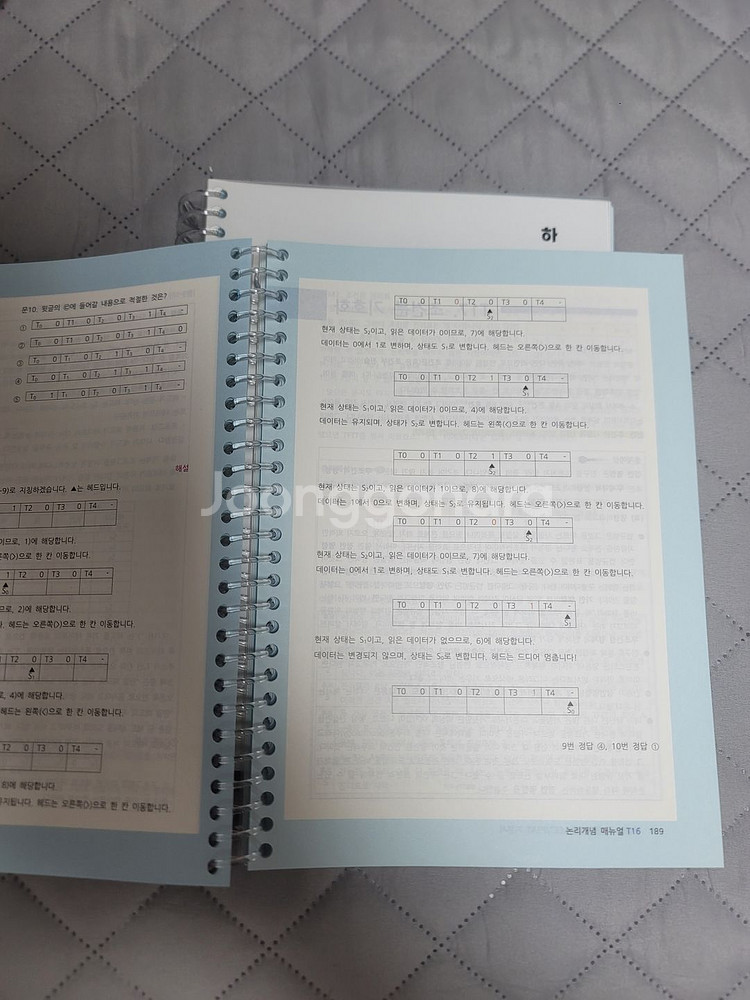 하
문10. 윗글의 ㉢에 들어갈 내용으로 적절한 것은?
① T₀ 0 T1 0 T₂ 0 T₃ 1 T₄ -
②
③
④
⑤ T₀ 1 T₁ 0 T₂ 0 T₃ 1 T₄ -
해설
~9)로 지칭하겠습니다. ▲는 헤드입니다.
1 T2 0 T3 0 T4 -
이므로, 1)에 해당합니다.
른쪽(>)으로 한 칸 이동합니다.
1 T2 0 T3 0 T4 -
S₀
므로, 2)에 해당합니다.
다. 헤드는 오른쪽(>)으로 한 칸 이동합니다.
1 T2 0 T3 0 T4 -
S₁
로, 4)에 해당합니다.
헤드는 왼쪽(<)으로 한 칸 이동합니다.
T2 0 T3 0 T4 -
8)에 해당합니다.
유지됩니다. 헤드는 오른쪽(>)으로 한 칸 이동합니다.
T0 0 T1 0 T2 0 T3 0 T4 -
S₂
현재 상태는 S₂이고, 읽은 데이터가 0이므로, 7)에 해당합니다.
데이터는 0에서 1로 변하며, 상태도 S₁로 변합니다. 헤드는 오른쪽(>)으로 한 칸 이동합니다.
T0 0 T1 0 T2 1 T3 0 T4 -
S₁
현재 상태는 S₁이고, 읽은 데이터가 0이므로, 4)에 해당합니다.
데이터는 유지되며, 상태가 S₂로 변합니다. 헤드는 왼쪽(<)으로 한 칸 이동합니다.
T0 0 T1 0 T2 1 T3 0 T4 -
S₂
현재 상태는 S₂이고, 읽은 데이터가 1이므로, 8)에 해당합니다.
데이터는 1에서 0으로 변하며, 상태는 S₂로 유지됩니다. 헤드는 오른쪽(>)으로 한 칸 이동합니다.
T0 0 T1 0 T2 0 T3 0 T4 -
S₂
현재 상태는 S₂이고, 읽은 데이터가 0이므로, 7)에 해당합니다.
데이터는 0에서 1로 변하며, 상태도 S₁로 변합니다. 헤드는 오른쪽(>)으로 한 칸 이동합니다.
T0 0 T1 0 T2 0 T3 1 T4 -
S₁
현재 상태는 S₁이고, 읽은 데이터가 없으므로, 6)에 해당합니다.
데이터는 변경되지 않으며, 상태는 S₀로 변합니다. 헤드는 드디어 멈춥니다!
T0 0 T1 0 T2 0 T3 1 T4 -
S₀
9번 정답 ④, 10번 정답 ①
논리개념 매뉴얼 T16 189